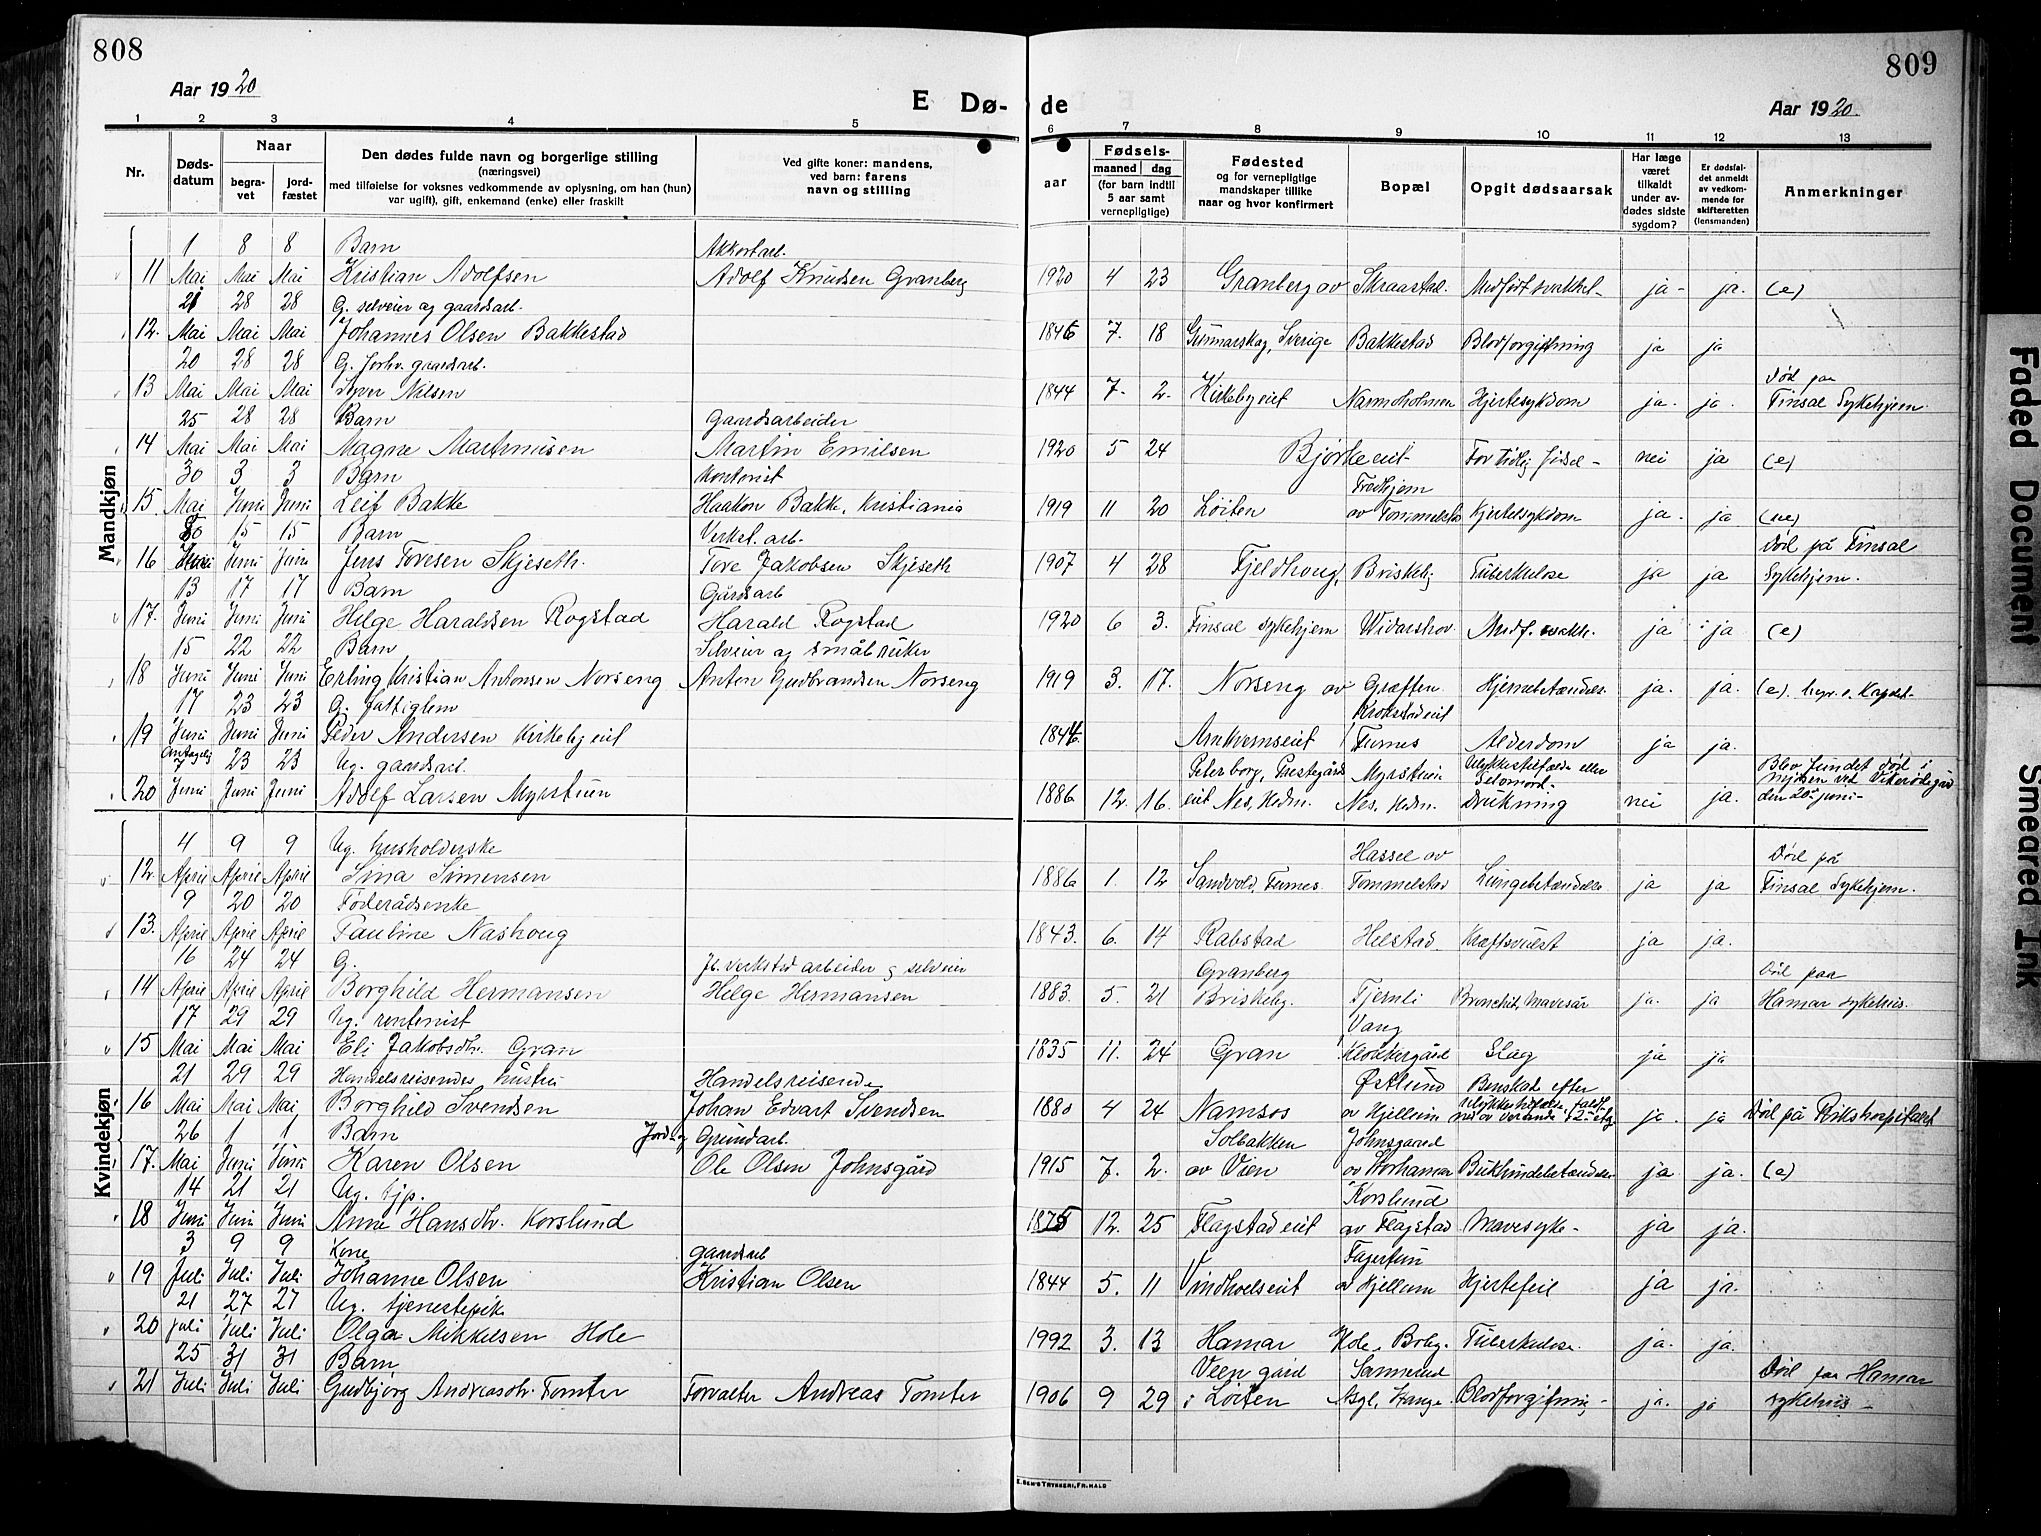 808
809
Aar 1920
E Dø-
de
Aar 1920
1 2 3 4 5
6 7 8 9 10 11 12 13
Nr.
Døds-
datum
Naar
begra-
vet
jord-
fæstet
Den dødes fulde navn og borgerlige stilling
(næringsvei)
med tilføielse for voksnes vedkommende av oplysning, om han (hun)
var ugift), gift, enkemand (enke) eller fraskilt
Ved gifte koner: mandens,
ved barn: farens
navn og stilling
aar
Fødsels-
maaned dag
(for barn indtil
5 aar samt
vernepligtige)
Fødested
og for vernepligtige
mandskaper tillike
naar og hvor konfirmert
Bopæl
Opgit dødsaarsak
Har læge
været
tilkaldt
under av-
dødes sidste
sygdom?
Er dødsfal-
det anmeldt
av vedkom-
mende for
skifteretten
(lensmanden)
Anmerkninger
Mandkjøn
1 8 8 Barn Akkortarb.
11 Mai Mai Mai Kristian Adolfsen Adolf Knudsen Granberg 1920 4 23 Granberg av Skraastad. Medfødt svakhet- ja- ja. (e)
21 28 28 G. selveier og gaardsarb.
12. Mai Mai Mai Johannes Olsen Bakkestad 1846 7. 18 Gunnarskog, Sverige Bakkestad Blodforgiftning ja ja
20 28 28 G. forhv. gaardsarb. Død paa
13 Mai Mai Mai Syver Nilsen 1844 7. 2. Kirkebyeiet Hjertesykdom ja. ja. Finsal Sykehjem
25 28 28 Barn gaardsarbeider
14 Mai Mai Mai Magne Martinusen Martin Emilsen 1920 5 24 Bjørkeeiet For tidlig fødsel- nei ja (e)
30 3 3 Barn Kontorist Fredhjem
15. Mai Juni Juni Leif Bakke Haakon Bakke, Kristiania 1919 11 20 Løiten av Tommelstad Hjertesykdom ja. ja (ue)
15 15 Barn Verkst. arb. Død på Finsal
16 Juni Juni Jens Toresen Skjeseth. Tore Jakobsen Skjeseth 1907 4 28 Fjeldhoug, Briskeby Tuberkulose ja ja Sykehjem.
13 17 17 Barn Gårdsarb
17. Juni Juni Juni Helge Haraldsen Rogstad Harald Rogstad 1920 6 3. Finsal sykehjem Widarshov Medf. svakh. ja ja (e)
15 22 22 Barn Selveier og småbruker
18 Juni Juni Juni Erling Kristian Antonsen Norseng Anton Gudbrandsen Norseng 1919 3. 17. Norseng av Græften. Hjernebetændelse ja. ja. (e).
17 23 23 G. fattiglem Krokstadeiet
19 Juni Juni Juni Peder Andersen Kirkebyeiet 1844. Arnkvernseiet Furnes Alderdom ja ja.
antagelig 7 23 23 Ug. gaardsarb. Peterborg, Prestegårds Myrstuen Ulykkestilfælde eller Selvmord- Blev fundet død i
20 Juni Juni Juni Adolf Larsen Myrstuen 1886 12. 16. eiet Nes, Hedm. Nes, Hedm. Drukning nei ja. den 20de juni-
Kvindekjøn
4 9 9 Ug. husholderske Hassel av Død på
12. April April April Sina Simensen 1886 1. 12 Sandvold, Furnes. Tommelstad Lungebetændelse ja ja Finsal Sykehjem.
9 20 20 Føderådsenke
13. April April April Pauline Nashoug 1843. 6. 14 Rabstad Helstad. Kræftsvulst ja ja.
16 24 24 G. Jb. verksted arbeider og selveier Granberg Død paa
14 April April April Borghild Hermansen Helge Hermansen 1883. 5. 21 Briskeby. Fjernli Bronchit, Mavesår ja. ja Hamar sykehus.
17 29 29 Ug. rentenist Vang
15 Mai Mai Mai Eli Jakobsdtr. Gran 1835 11. 24 Gran Klokkergård Slag ja ja
21 29 29 Handelsreisendes hustru Handelsreisende Østlund Benskade efter
16 Mai Mai Mai Borghild Svendsen Johan Edvart Svendsen 1880 4 24 Namsos av Hjellum ulykkestilfælde, faldt ned av veranda i 2. etg. ja. ja Død på Rikshospitalet
26 1 1 Barn Jord- og Grundarb. Solbakken Johnsgaard
17. Mai Juni Juni Karen Olsen Ole Olsen Johnsgård 1915 7. 2. av Vien av Storhamar Bukhindebetændelse ja ja. (e)
14 21 21 Ug. tjp. Korslund
18 Juni Juni Juni Anne Hansdtr. Korslund 1875 12. 25 Flagstadeiet av Flagstad Mavesyke- ja ja.
3 9 9 Kone gaardsarb Fagertun
19 Juli Juli Juli Johanne Olsen Kristian Olsen 1844 5. 11 av Hjellum Hjertefeil ja ja.
21 27 27 Ug. tjenestepike
20 Juli Juli Juli Olga Mikkelsen Hole 1992 3. 13 Hamar Hole, Tuberkulose. ja. ja.
25 31 31 Barn Veen gård Død paa Hamar
21 Juli Juli Juli Gudbjørg Andreasdtr. Tomter Forvalter Andreas Tomter 1906 9 29 i Løiten Blodforgiftning- ja. ja sykehus-
E. SEM'S TRYKKERI, FR.HALD
Faded Document
Smeared Ink